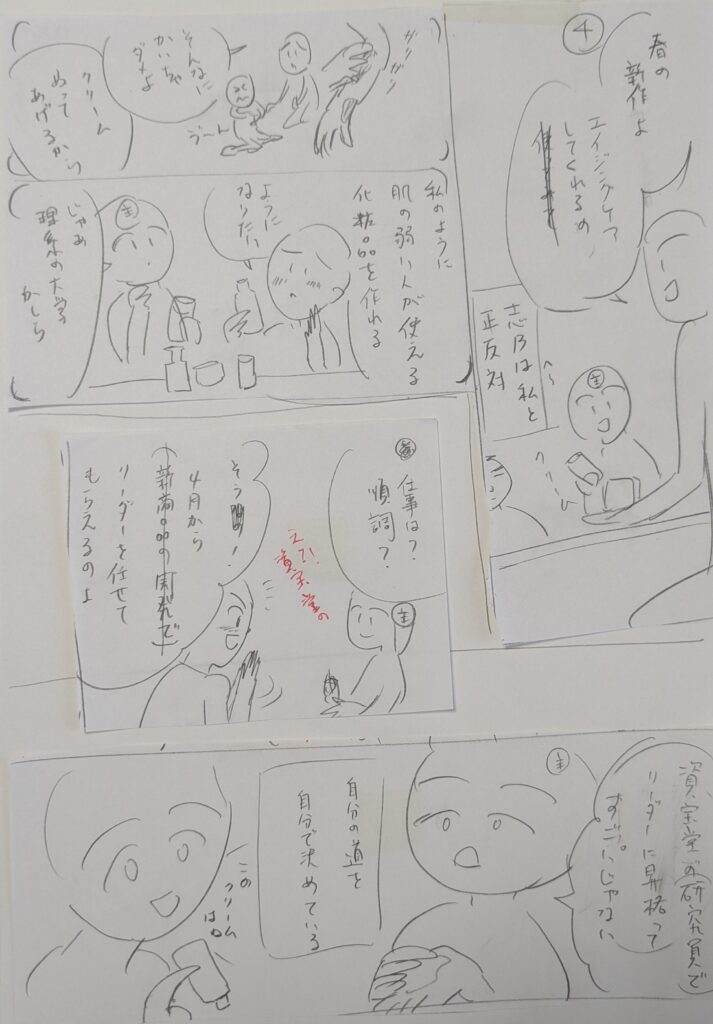 4
春の
新作よ
エイジングケア
してくれるの
主
志乃は私と
正反対
ガリガリ
そんなに
かいちゃ
ダメよ
クリーム
ぬって
あげるから
私のように
肌の弱い人が使える
化粧品を作れる
ように
なりたい
主
じゃあ
理系の大学
かしら
仕事は?
順調?
主
資宝堂の
そう!
4月から
新商品の
リーダーを任せて
もらえるのよ
資宝堂の研究員で
リーダーに昇格って
すごいじゃない
主
自分の道を
自分で決めている
この
クリームは